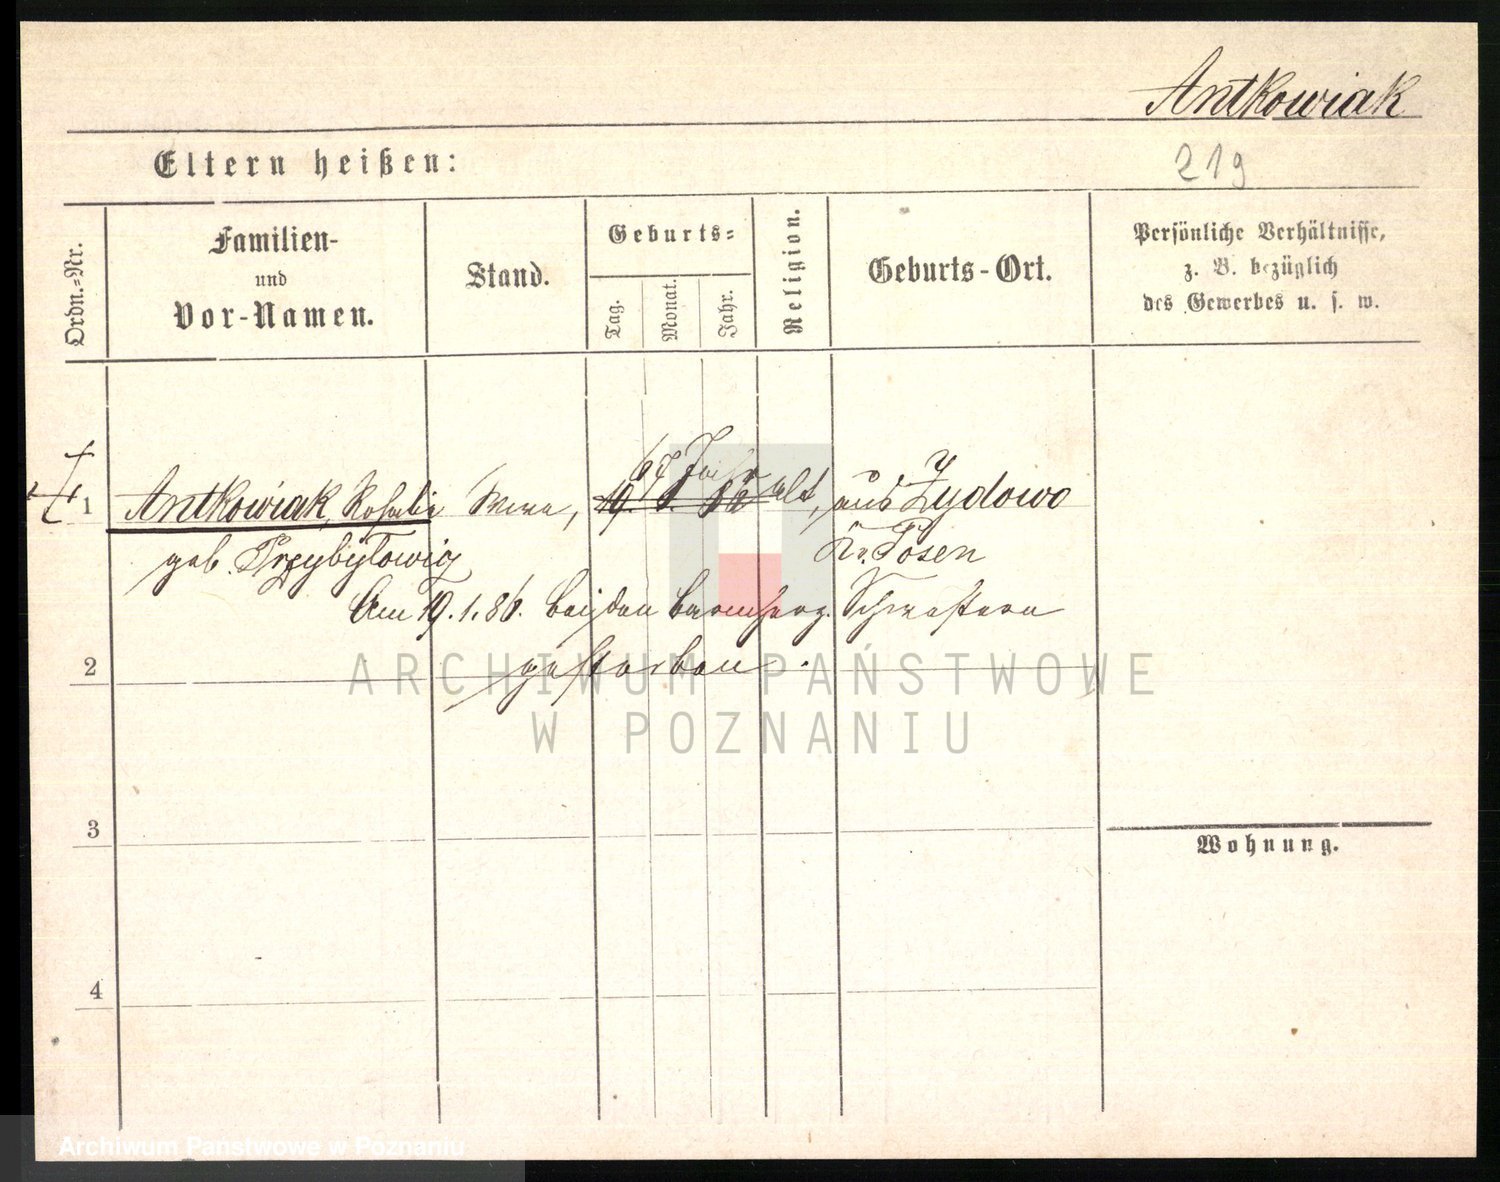 Antkowiak
219
Eltern heißen:
Ordn.=Nr.
Familien-
und
Vor-Namen.
Stand.
Geburts=
Tag.
Monat.
Jahr.
Religion.
Geburts-Ort.
Persönliche Verhältnisse,
z. B. bezüglich
des Gewerbes u. s. w.
67 Jahr
1 Antkowiak, Rosalie Wwe, 19. 1. 86 alt, aus Zydowo
geb. Przybylowig Kr. Posen
Am 19.1.86. bei den barmherz. Schwestern
2 gestorben.
ARCHIWUM PAŃSTWOWE
W POZNANIU
3
Wohnung.
4
Archiwum Państwowe w Poznaniu